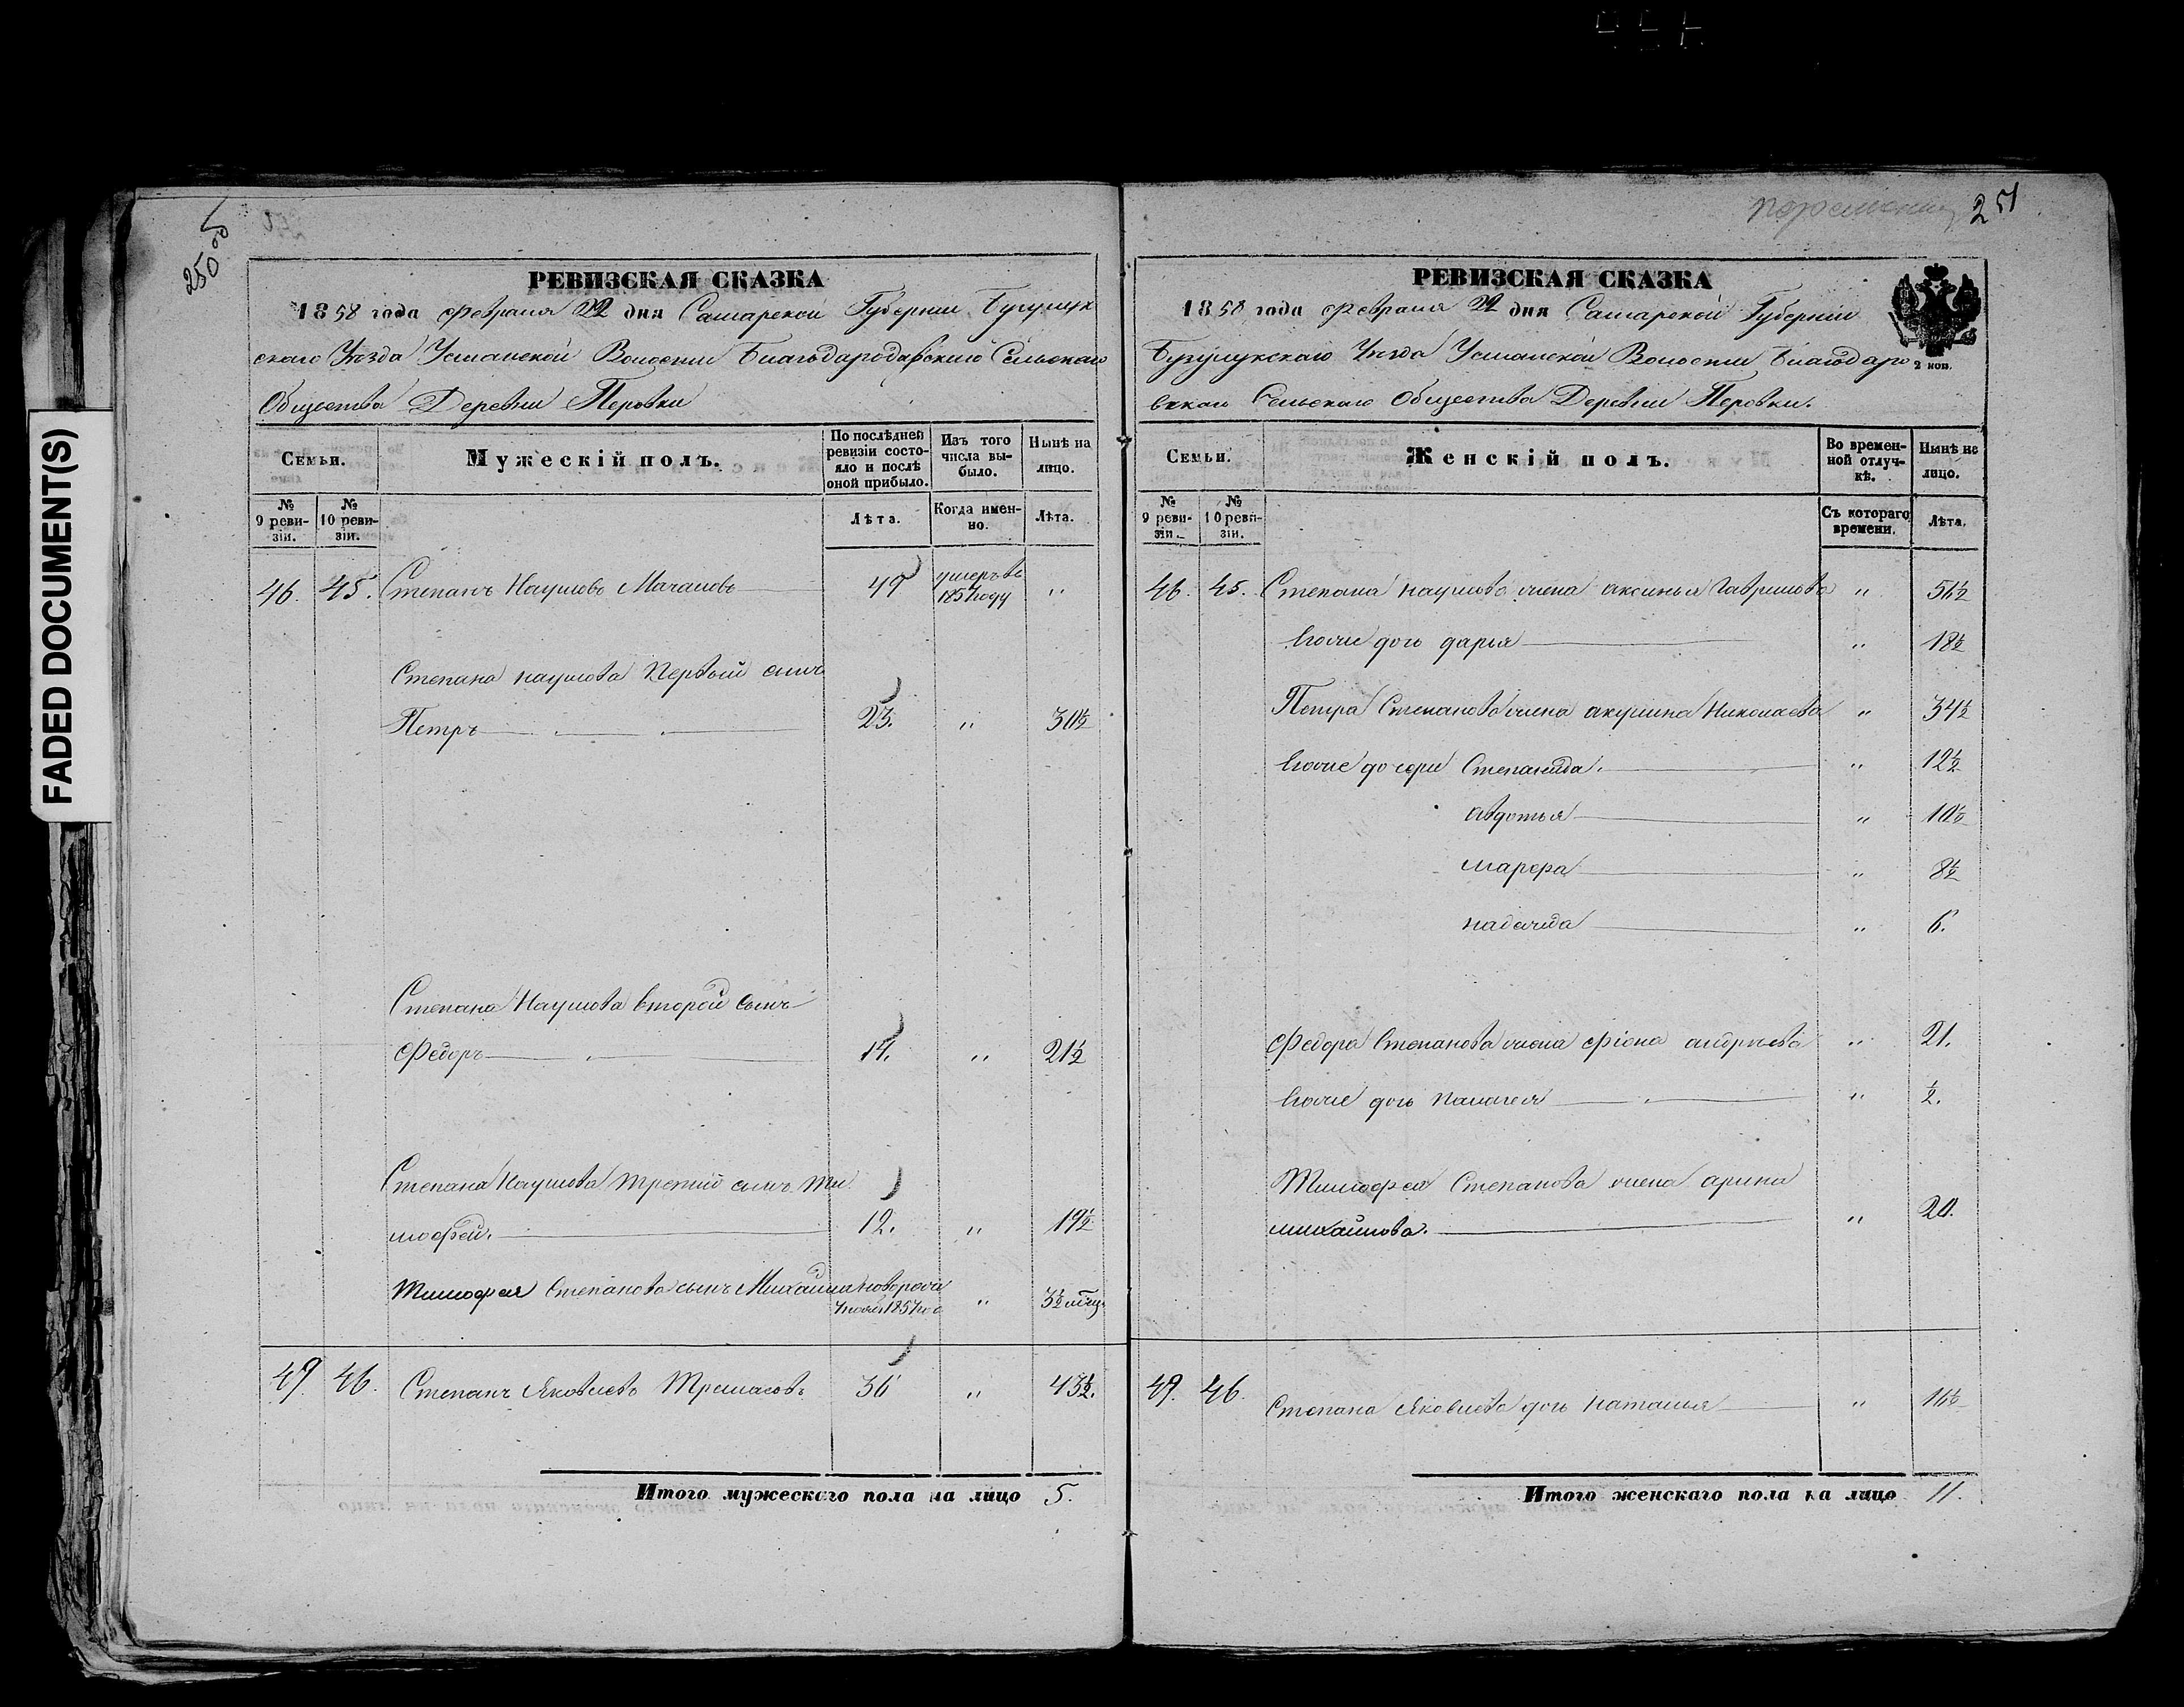 FADED DOCUMENT(S)
250 об
РЕВИЗСКАЯ СКАЗКА
1858 года Февраля 22 дня Самарской Губернии Бугулук
скаго Уѣзда Усманской Волости Сельскаго
Общества Деревни Перовки
Семьи.
Мужескій полъ.
По послѣдней ревизіи состояло и послѣ оной прибыло.
Изъ того числа выбыло.
Нынѣ на лицо.
№ 9 ревизіи.
№ 10 ревизіи.
Лѣта.
Когда именно.
Лѣта.
46. 45. Степанъ Наумовъ Мачановъ 49 умеръ въ 1857 году "
Степана Наумова первый сынъ
Петръ 23. " 30½
Степана Наумова второй сынъ
Федоръ 14. " 21½
Степана Наумова третий сынъ Ти
мофей. 12. " 19½
Тимофея Степанова сынъ Михаила новорож " 3½ мѣц.
49. 46. Степанъ Яковлевъ 36 " 43½.
Итого мужескаго пола на лицо 5.
251
РЕВИЗСКАЯ СКАЗКА
1858 года Февраля 22 дня Самарской Губернии
Бузулукскаго Уѣзда Усманской Волости Благодаро
2 коп.
вскаго Сельскаго Общества Деревни Перовки.
Семьи.
Женскій полъ.
Во временной отлучкѣ.
Нынѣ на лицо.
№ 9 ревизіи.
№ 10 ревизіи.
Съ котораго времени.
Лѣта.
46. 45. Степана Наумова жена аксинья Гаврилова " 51½
Егоже дочь дарья " 18½
Петра Степанова жена акулина Николаева " 34½
Егоже дочери Степанида. " 12½
авдотья " 10½
марфа " 8½
надежда " 6.
Федора Степанова жена фіона андрѣева " 21.
Егоже дочь Палагея " ½.
Тимофея Степанова жена арина
михайлова. " 20.
49. 46. Степана Яковлева дочь Наталья " 16½
Итого женскаго пола на лицо 11.